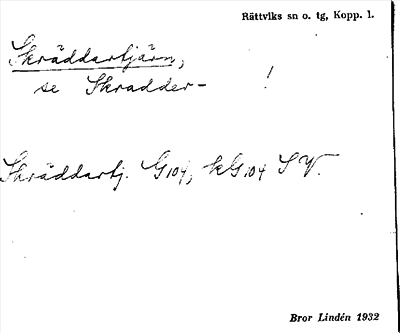 Rättviks sn o. tg, Kopp. l.
Skräddartjärn,
se Skradder- !
Skräddartj. G104, kG104 SV.
Bror Lindén 1932